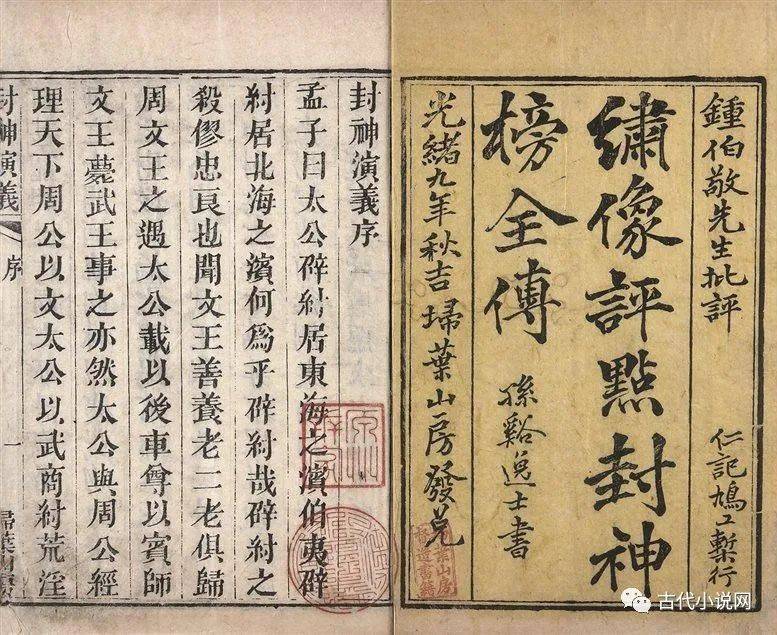 鍾伯敬先生批評
仁記鳩工槧行
繡像評點封神
榜全傳
孫谿逸士書
光緒九年秋吉埽葉山房發兌
封神演義序
孟子曰太公辟紂居東海之濱伯夷辟
紂居北海之濱何爲乎辟紂哉辟紂之
殺僇忠良也聞文王善養老二老俱歸
周文王之遇太公載以後車尊以賓師
文王薨武王事之亦然太公與周公經
理天下周公以文太公以武商紂荒淫
封神演義 序
一
古代小说网